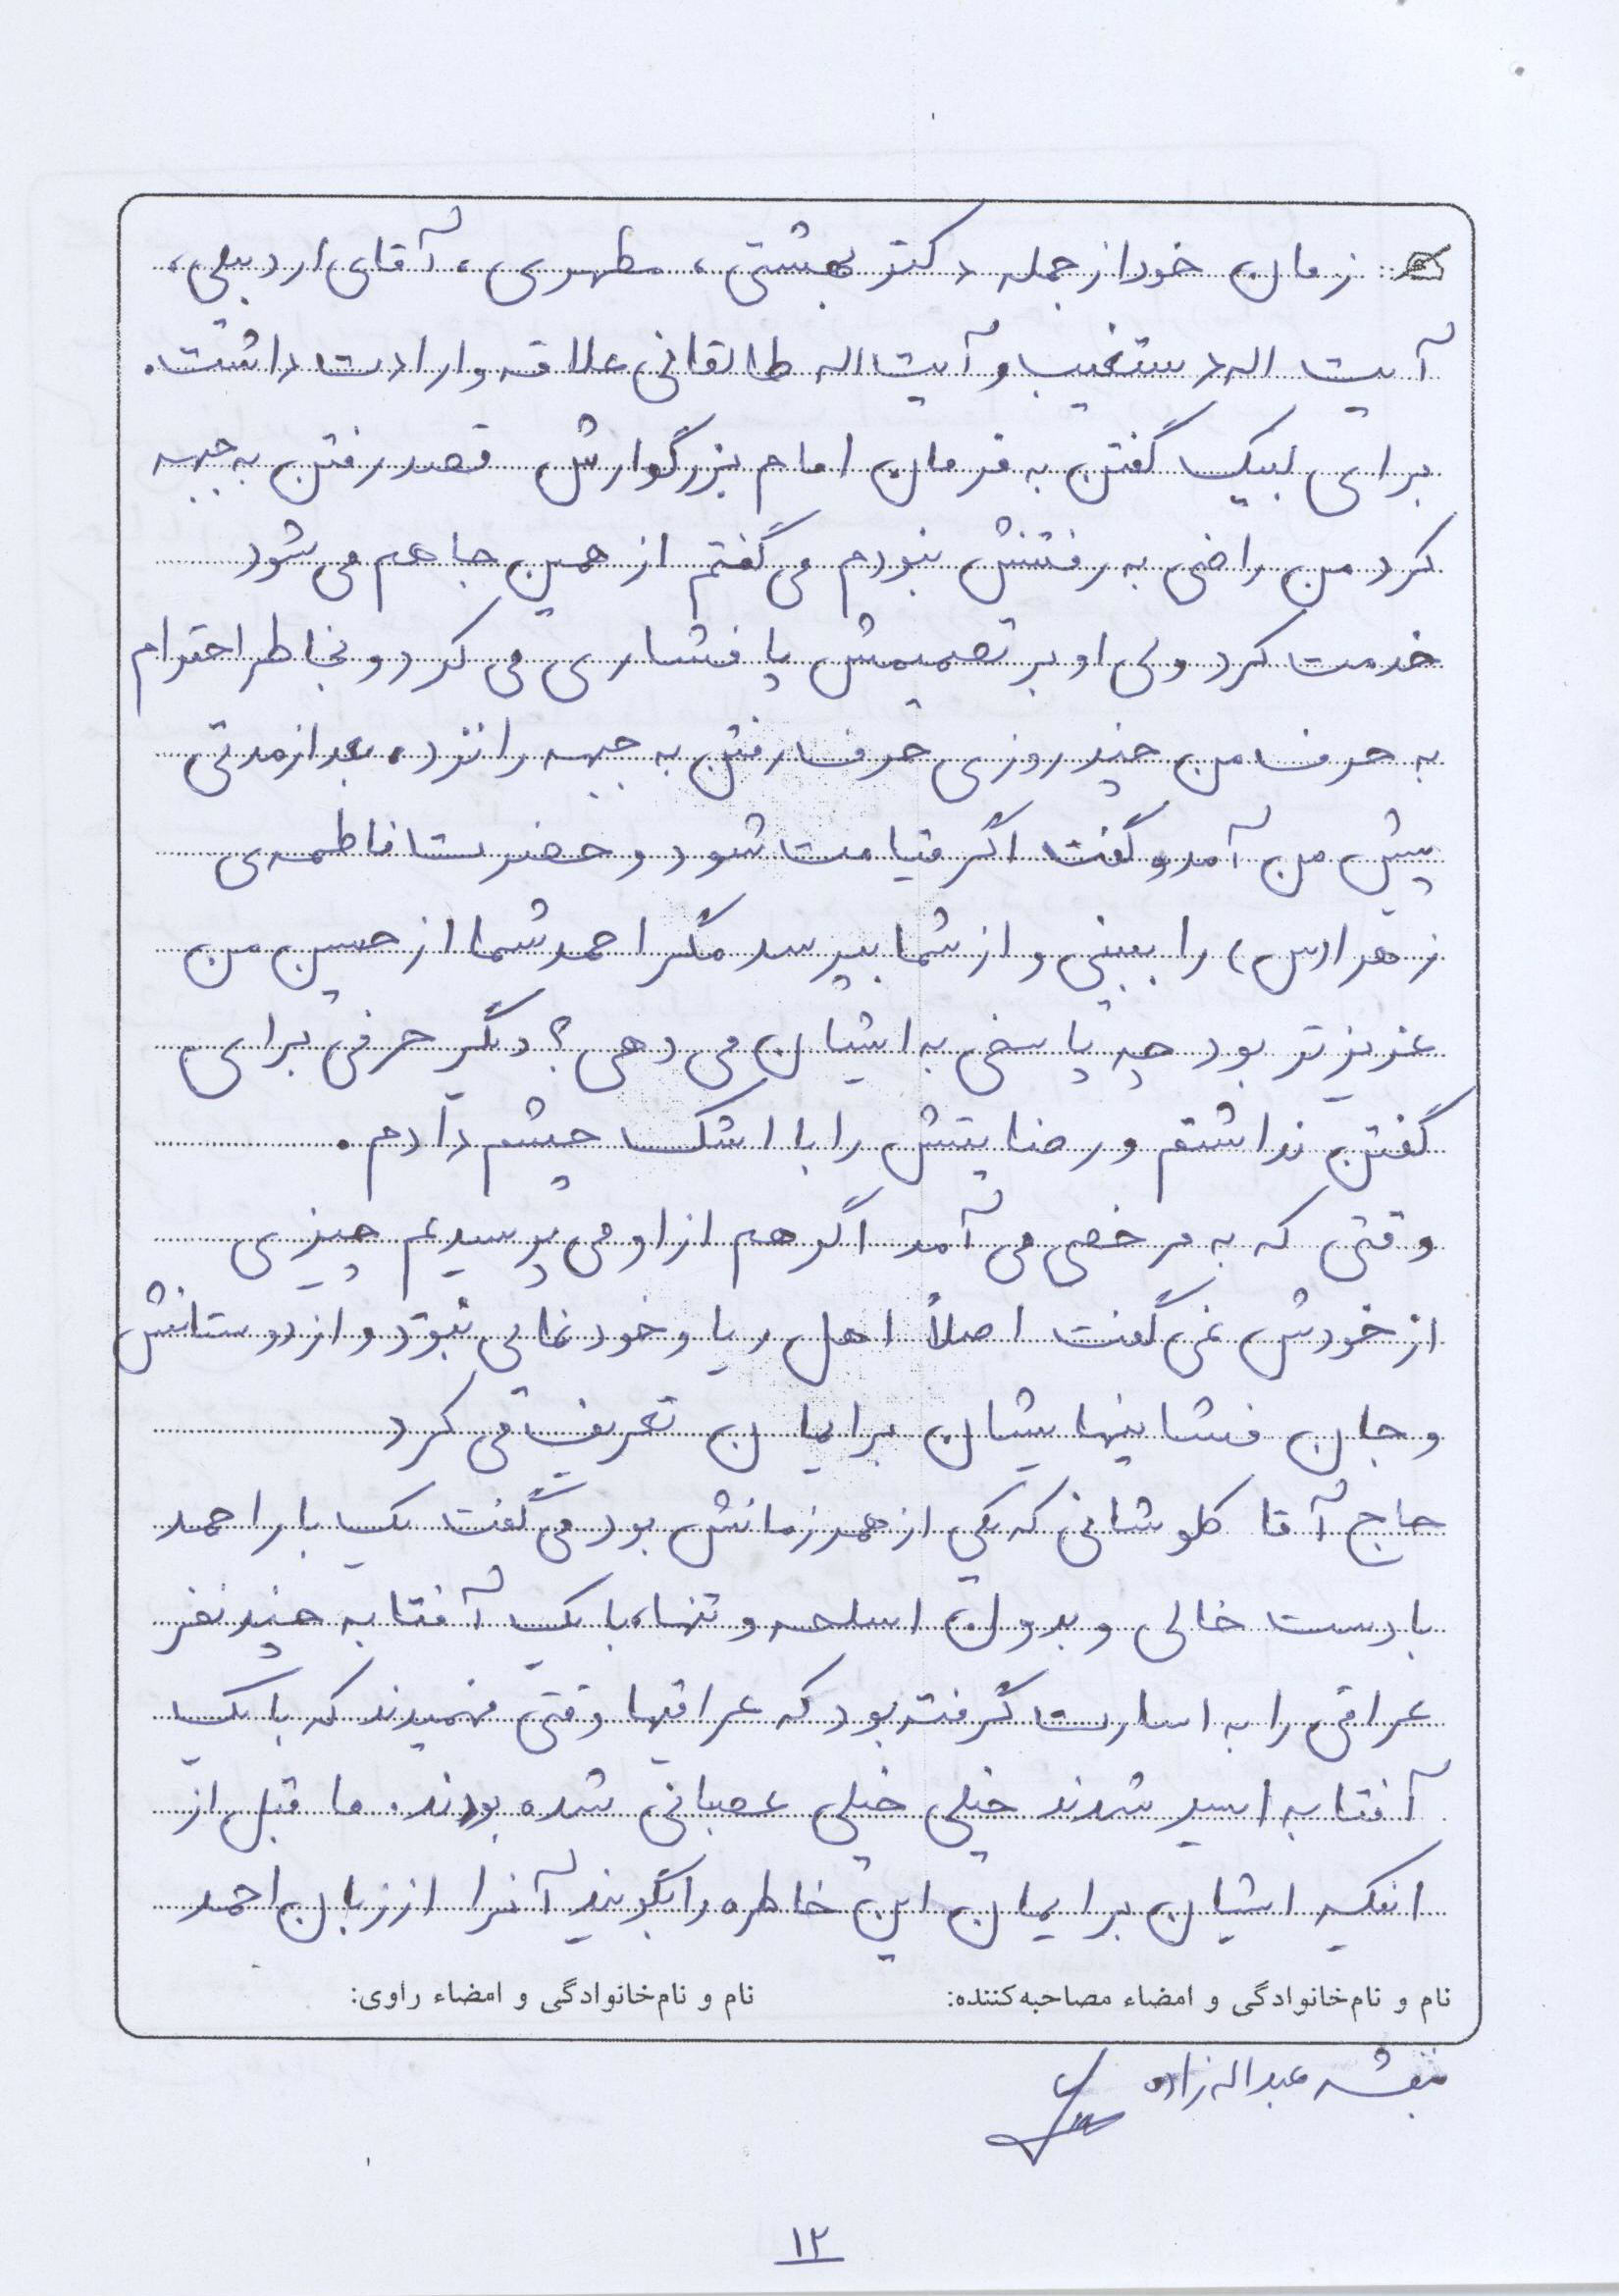 زمان خود از جمله دکتر بهشتی، مطهری، آقای اردبیلی،
آیت اله دستغیب و آیت اله طالقانی علاقه و ارادت داشت.
برای لبیک گفتن به فرمان امام بزرگوارش قصد رفتن به جبهه
کرد من راضی به رفتنش نبودم می گفتم از همین جا هم می شود
خدمت کرد ولی او بر تصمیمش پا فشاری می کرد و بخاطر احترام
به حرف من چند روزی حرف رفتن به جبهه را نزد. بعد از مدتی
پیش من آمد و گفت اگر قیامت شود و حضرت فاطمه ی
زهرا (س) را ببینی و از شما بپرسد مگر احمد شما از حسین من
عزیزتر بود چه پاسخی به ایشان می دهی؟ دیگر حرفی برای
گفتن نداشتم و رضایتش را با اشک چشم دادم.
وقتی که به مرخصی می آمد اگر هم از او می پرسیدیم چیزی
از خودش نمی گفت اصلاً اهل ریا و خودنمایی نبود و از دوستانش
و جان فشانیهایشان برایمان تعریف می کرد
حاج آقا کلوشانی که یکی از همرزمانش بود می گفت یک بار احمد
با دست خالی و بدون اسلحه و تنها، با یک آفتابه چند نفر
عراقی را به اسارت گرفته بود که عراقیها وقتی فهمیدند که با یک
آفتابه اسیر شدند خیلی خیلی عصبانی شده بودند. ما قبل از
اینکه ایشان برایمان این خاطره را بگویند آنرا از زبان احمد
نام و نام‌خانوادگی و امضاء مصاحبه‌کننده: نام و نام‌خانوادگی و امضاء راوی:
بنفشه عبداله زاده
۱۲